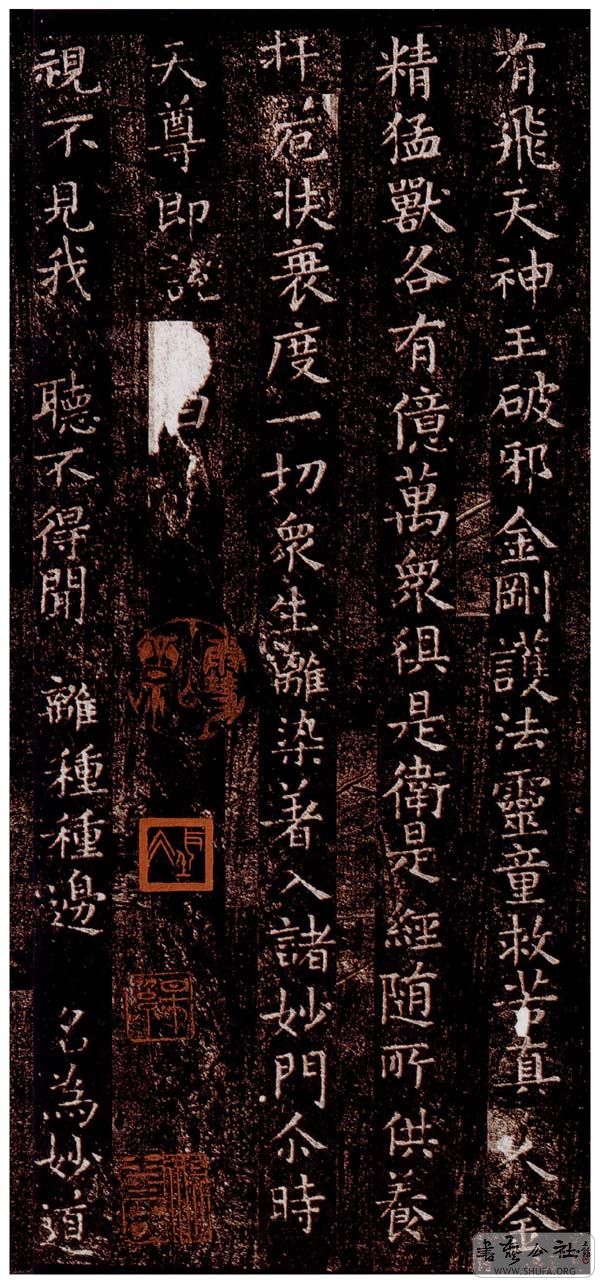 有飛天神王破邪金剛護法靈童救苦真人金
精猛獸各有億萬衆俱是衛是經随所供養
扞厄扶衰度一切衆生離染著入諸妙門尒時
天尊即說 曰
視不見我 聽不得聞 離種種邊 名為妙道
書藝公社
WWW.SHUFA.ORG